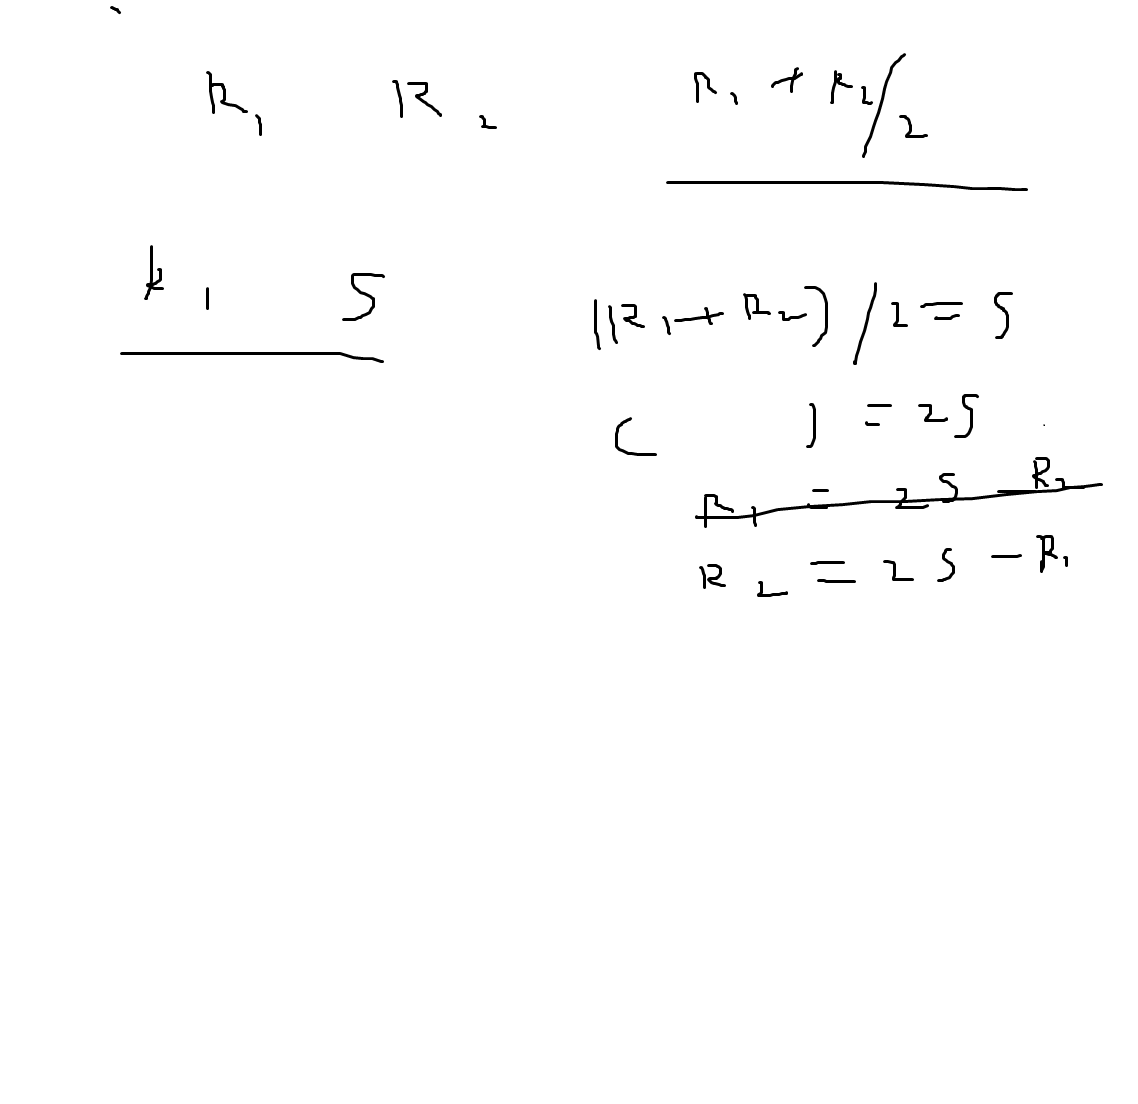 R₁ R₂ R₁ + R₂/2
R₁ S (R₁ + R₂) / 2 = S
( ) = 2S
R₁ = 2S - R₂
R₂ = 2S - R₁